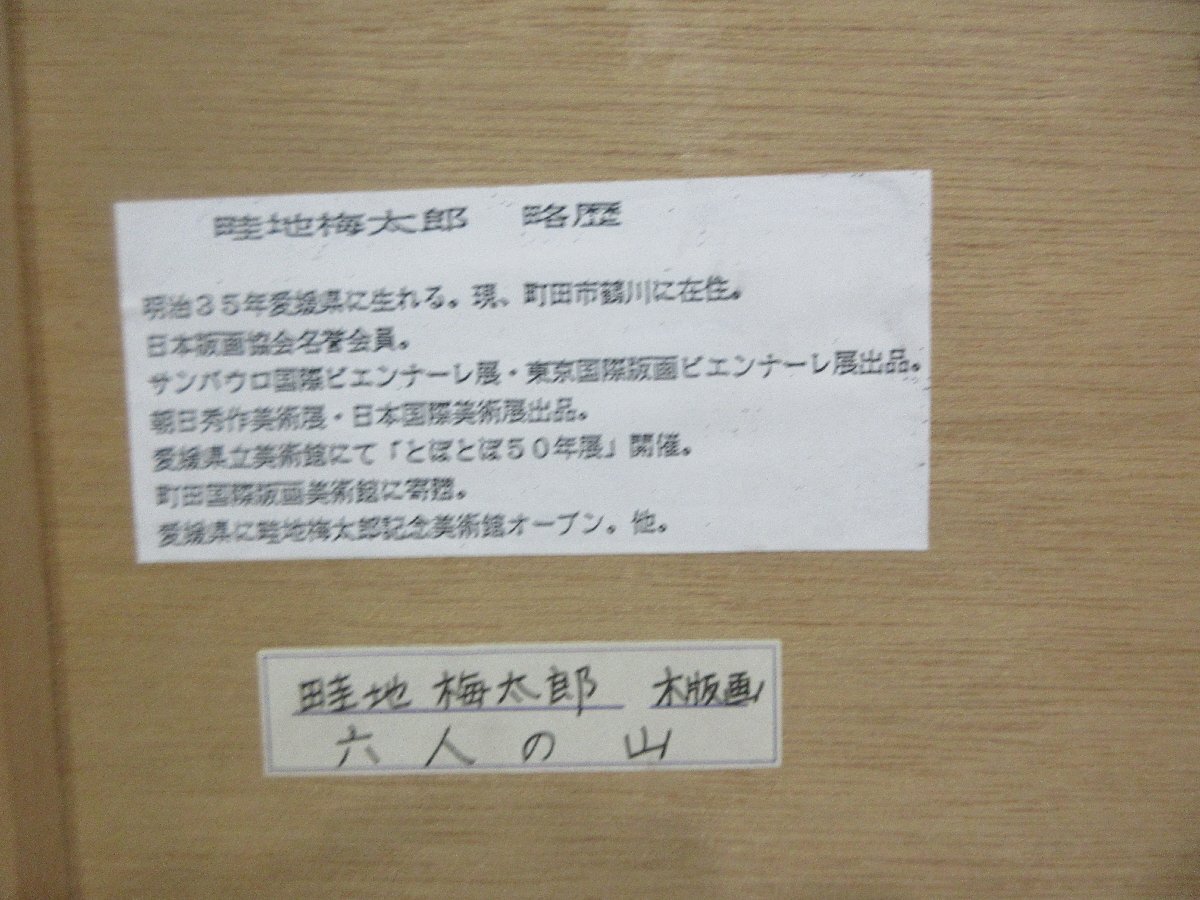 畦地梅太郎　略歴
明治３５年愛媛県に生れる。現、町田市鶴川に在住。
日本版画協会名誉会員。
サンパウロ国際ビエンナーレ展・東京国際版画ビエンナーレ展出品。
朝日秀作美術展・日本国際美術展出品。
愛媛県立美術館にて「とぼとぼ５０年展」開催。
町田国際版画美術館に寄贈。
愛媛県に畦地梅太郎記念美術館オープン。他。
畦地 梅太郎　木版画
六人の山